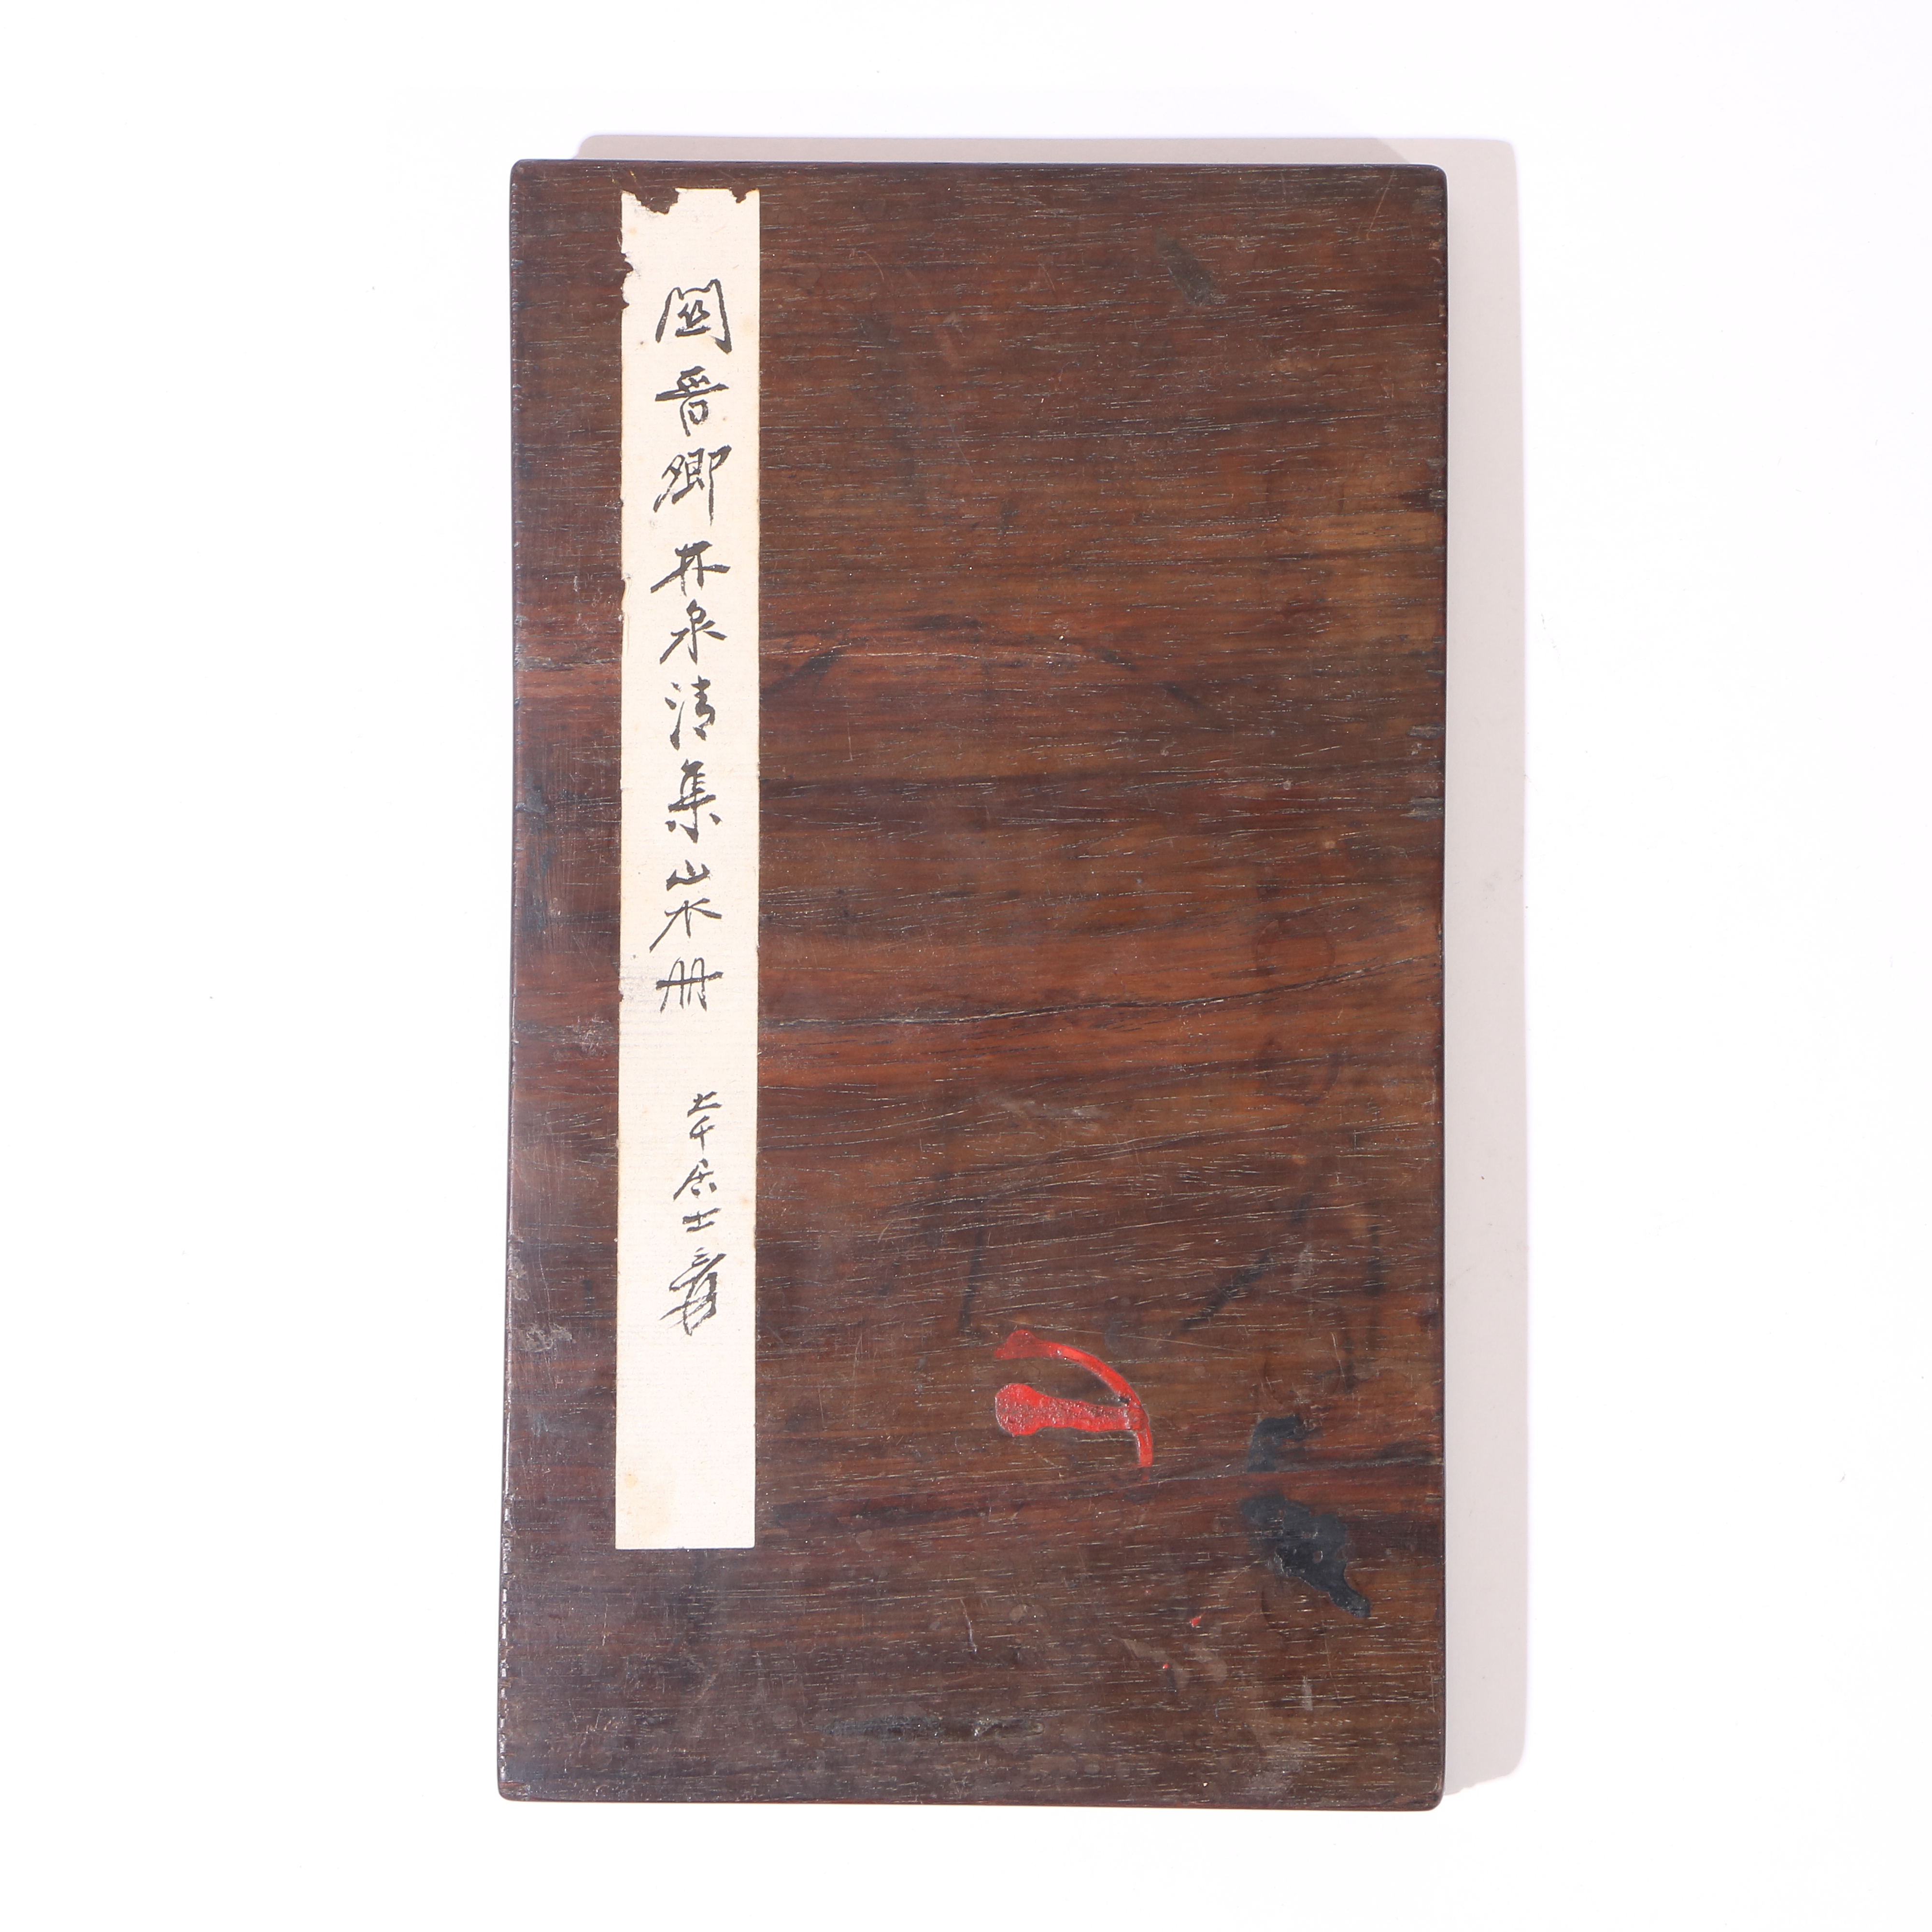 關晉卿林泉清集山水册
大千居士爰